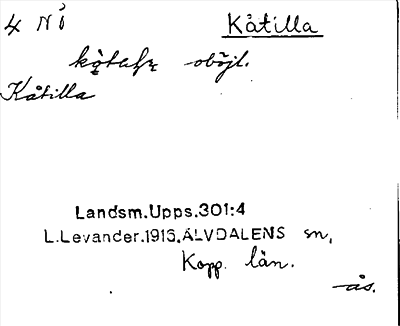 4 Ni Kåtilla
oböjl.
Kåtilla
Landsm.Upps.301:4
L.Levander.1916.ÄLVDALENS sn,
Kopp. län.
ås.